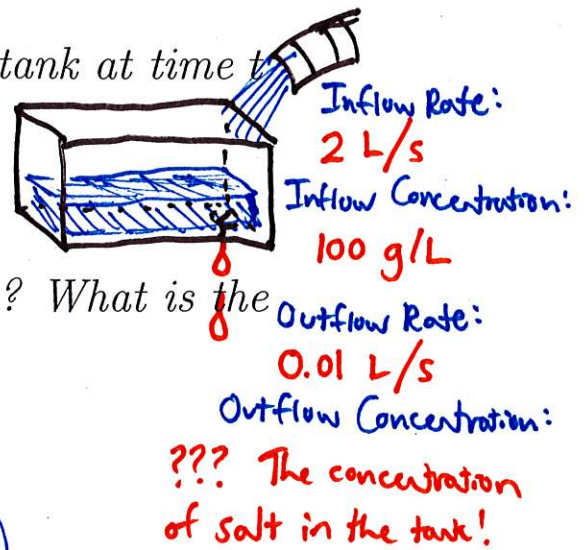 tank at time t
Inflow Rate:
2 L/s
Inflow Concentration:
100 g/L
? What is the
Outflow Rate:
0.01 L/s
Outflow Concentration:
??? The concentration
of salt in the tank!